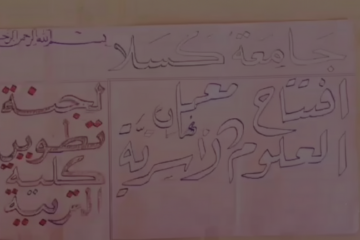 بسم الله الرحمن الرحيم
جامعة كسلا
افتتاح معمل
العلوم الأسرية
لجنة
تطوير
كلية
التربية